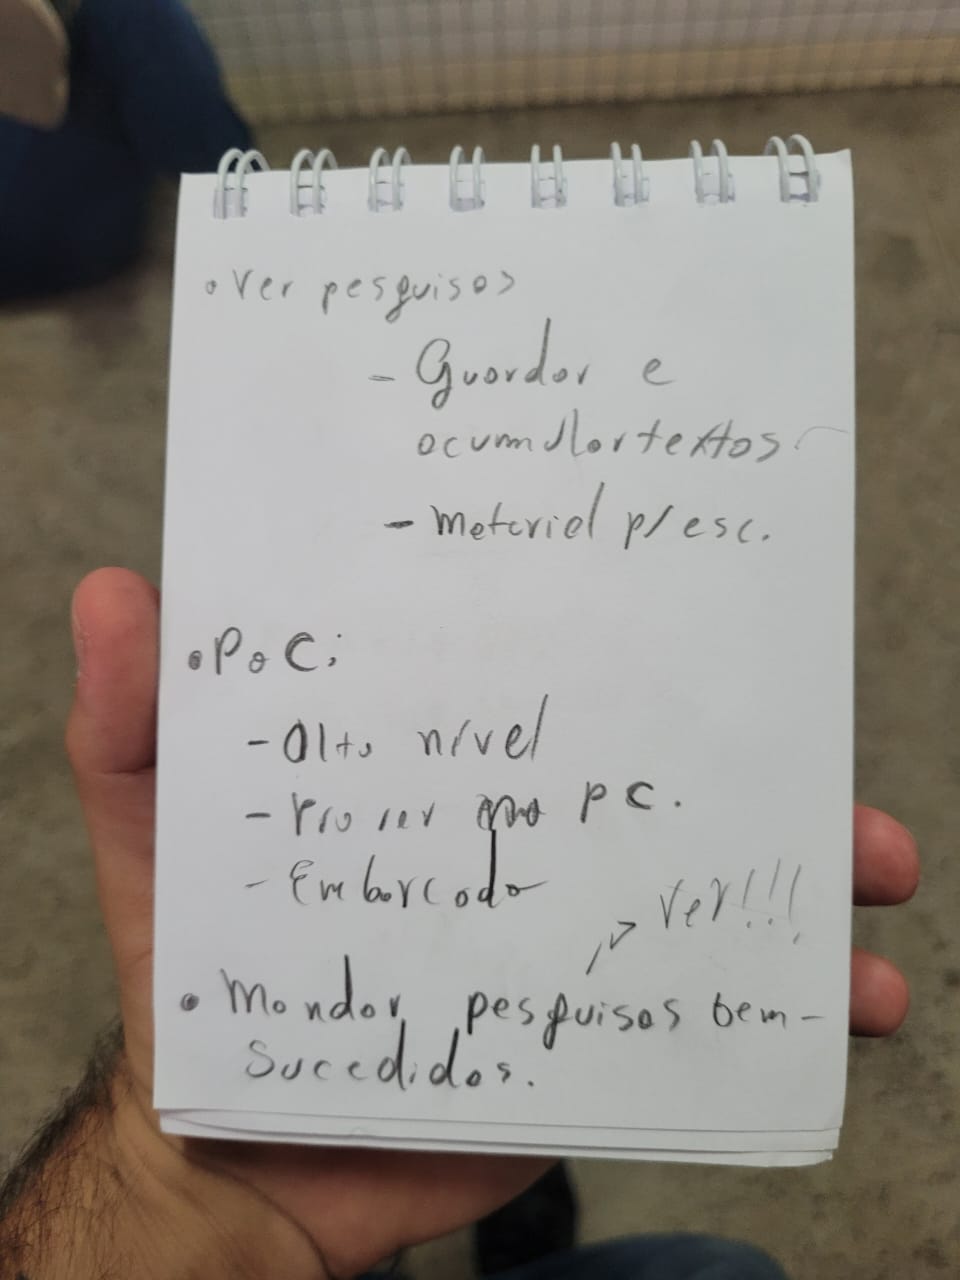 • Ver pesquisas
- Guardar e
acumular textos
- Material p/ esc.
• PoC:
- Alto nível
- no pc.
- Embarcado
ver!!!
• Mandar pesquisas bem-
sucedidas.